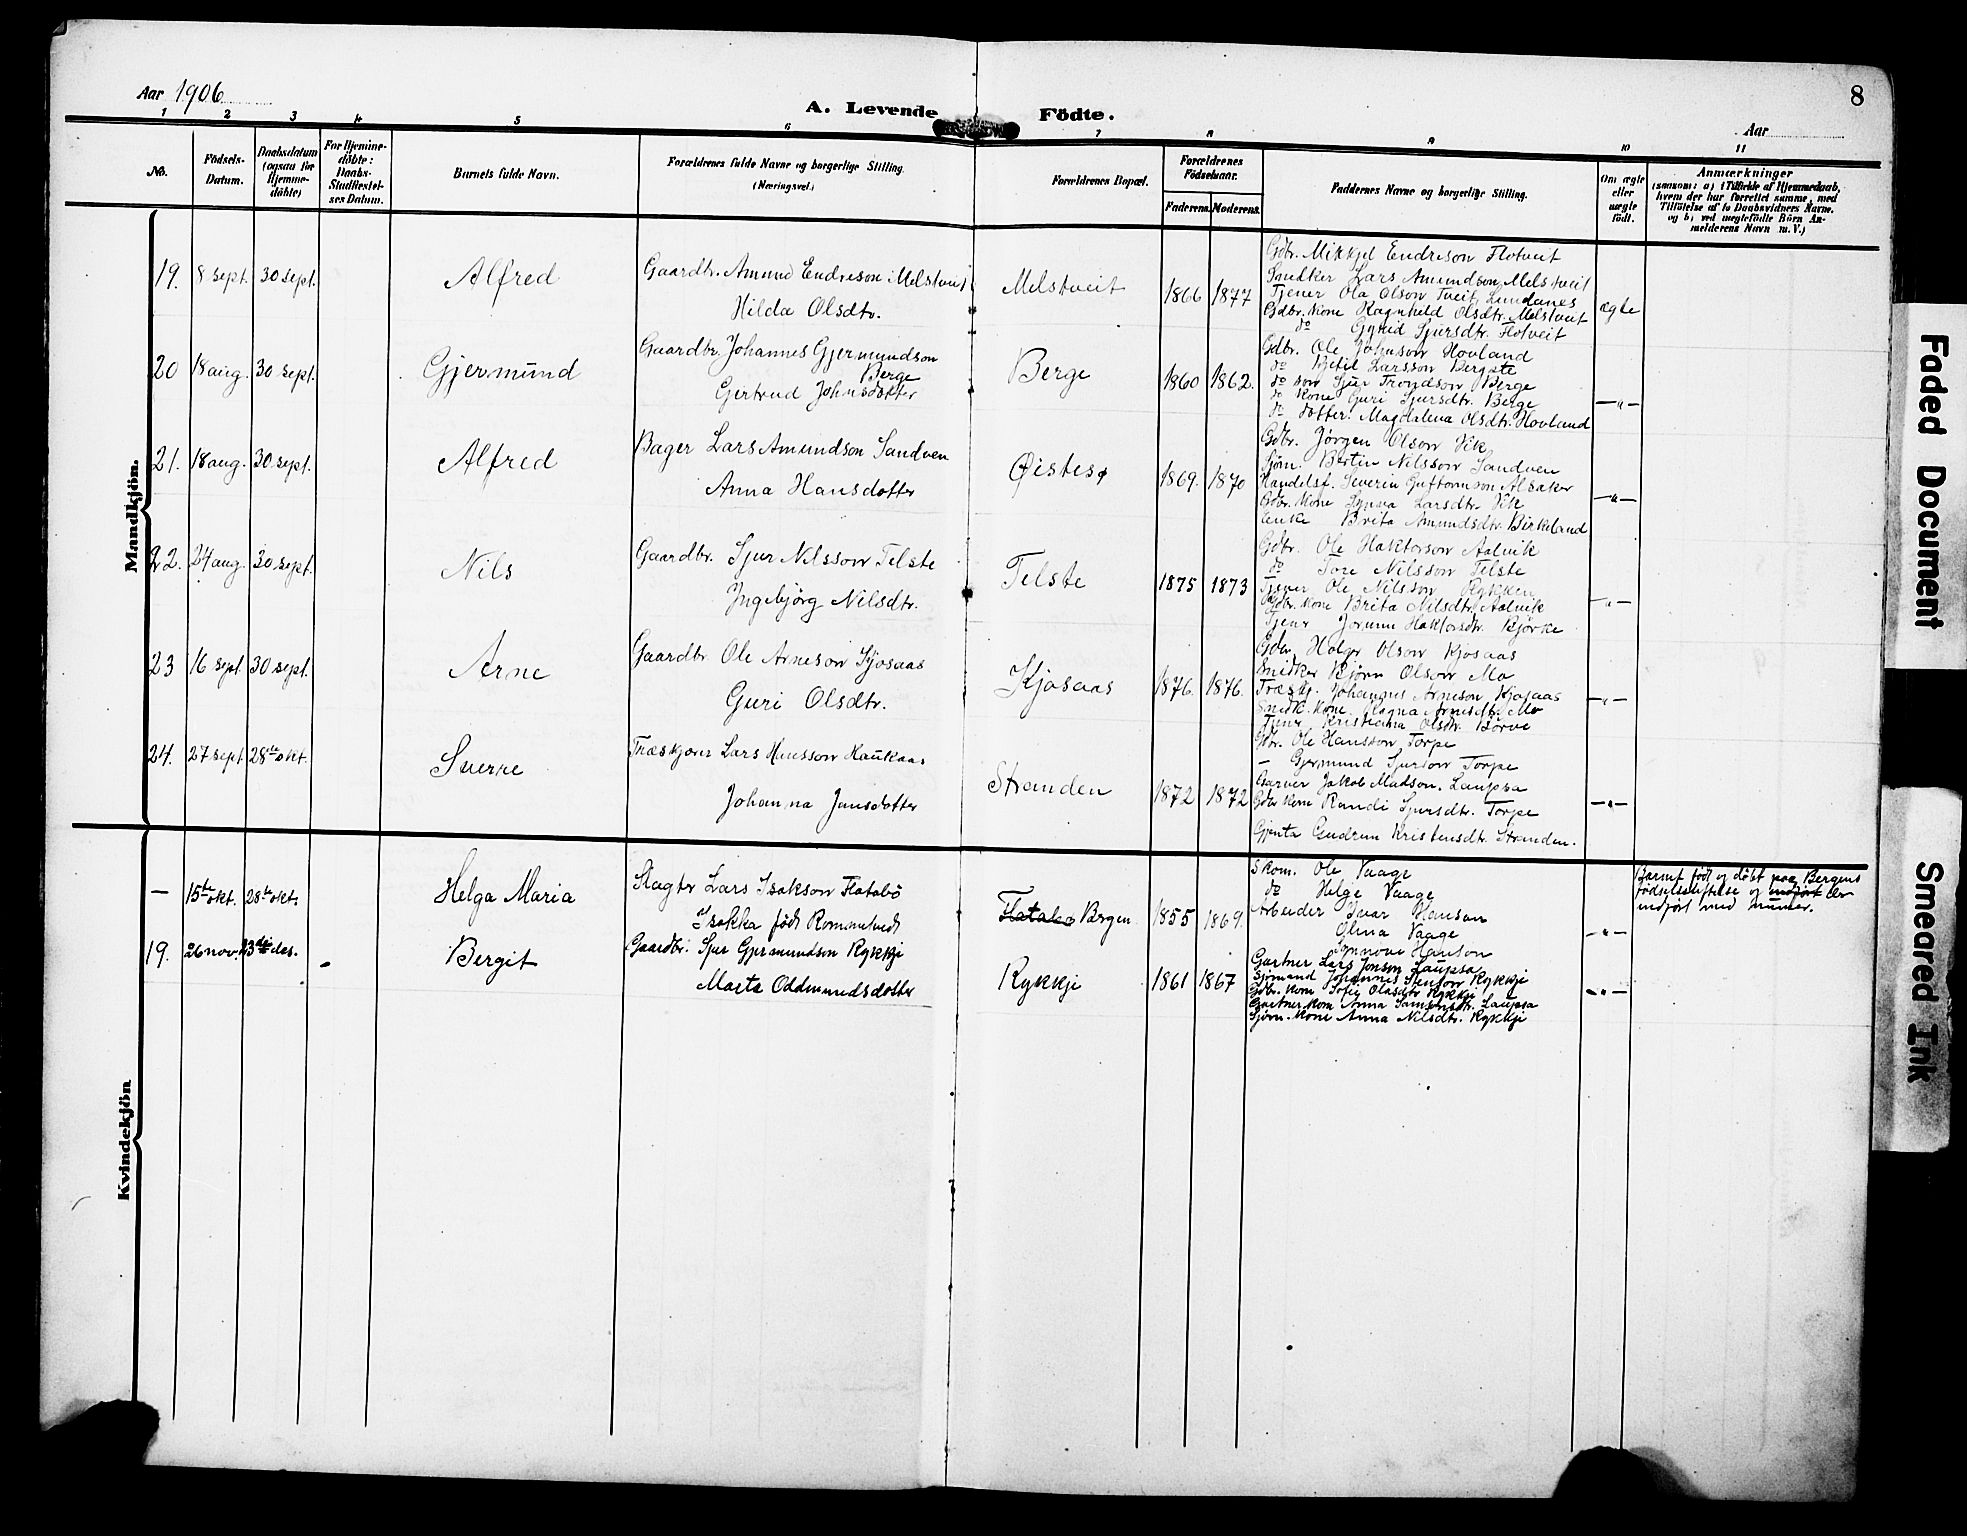 8
Aar 1906
A. Levende Födte.
Aar
1 2 3 4 5 6 7 8 9 10 11
No.
Födsels-
Datum.
Daabsdatum
(ogsaa for
Hjemme-
döbte)
For Hjemme-
döbte:
Daabs-
Stadfæstel-
ses Datum.
Barnets fulde Navn.
Forældrenes fulde Navne og borgerlige Stilling.
(Næringsvei.)
Forældrenes Bopæl.
Forældrenes
Födselsaar.
Faderens. Moderens.
Faddernes Navne og borgerlige Stilling.
Om ægte
eller
uægte
födt.
Anmærkninger
(saasom: a) i Tilfælde af Hjemmedaab,
hvem der har forrettet samme, med
Tilföielse af to Daabsvidners Navne.
og b) ved uægtefödte Börn An-
melderens Navn m. V.)
Mandkjön.
19. 8 sept. 30 sept. Alfred
Gaardbr. Amund Endreson Melstveit
Hilda Olsdtr.
Melstveit 1866 1877
Gdbr. Mikkjel Endreson Flotveit
Snedker Lars Amundson Melstveit
Tjener Ola Olson Tveit, Lundanes
Gdbr. kone Ragnhild Olsdtr. Melstveit
do Gyrid Sjursdtr. Flotveit
ægte
20 18 aug. 30 sept. Gjermund
Gaardbr. Johannes Gjermundson
Berge
Gertrud Johnsdotter
Berge 1860 1862.
Gdbr. Ole Johnson Hovland
do Kjetil Larsson Bergste
do son Sjur Trondson Berge
do kone Guri Sjursdtr. Berge
do dotter. Magdalena Olsdtr. Hovland
—"—
21. 18 aug. 30 sept. Alfred
Bager Lars Amundson Sandven
Anna Hansdotter
Øistesø 1869. 1870
Gdbr. Jörgen Olson Vik
Sjöm. Bertin Nilsson Sandven
Handelsf. Severin Guttormson Alsaker
Gdbr. kone Synva Larsdtr. Vik
Enke Brita Amundsdtr. Birkeland
—"—
22. 24 aug. 30 sept. Nils
Gaardbr. Sjur Nilsson Telste
Ingebjörg Nilsdtr.
Telste 1875 1873
Gdbr. Ole Haktorson Aalvik
do Tore Nilsson Telste
Tjener Ole Nilsson Rykken
Gdbr. kone Brita Nilsdtr. Aalvik
Tjenr Jorunn Haktorsdtr. Bjørke
—"—
23 16 sept. 30 sept. Arne
Gaardbr. Ole Arneson Kjosaas
Guri Olsdtr.
Kjosaas 1876. 1876.
Gdbr. Holger Olson Kjosaas
Snidker Bjørn Olson Mo
Træskj. Johannes Arneson Kjosaas
Snidk. kone Ragna Arnesdtr. Mo
Tjenr Kristiana Olsdtr. Börve
—"—
24. 27 sept. 28de okt. Sverre
Træskjærer Lars Hansson Haukaas
Johanna Jansdotter
Stranden 1872 1872
Gdbr. Ole Hansson Torpe
— Gjermund Sjurson Torpe
Garver Jakob Madson. Laupsa
Gdbr kone Randi Sjursdtr. Torpe
Gjenta Gudrun Kristensdtr. Stranden.
—"—
Kvindekjön
— 15de okt. 28de okt. Helga Maria
Slagter Lars Isakson Flatabö
Isakka född Rommetvedt
Flatabö Bergen 1855 1869.
Skom. Ole Vaage
do Helge Vaage
Arbeider Ivar Hanson
Olina Vaage
Synnove Hanson
—"—
Barnet född og döbt paa Bergens
födselsstiftelse og indfört der
indfört med numer.
19. 26 nov. 23de des. Bergit
Gaardbr. Sjur Gjermundson Rykkje
Marta Oddmundsdotter
Rykkje 1861 1867
Gartner Lars Jonson Laupsa
Sjömand Johannes Stenson Rykkje
Gdbr. kone Sofie Olasdtr Rykkje
Gartner kone Anna Samsonsdtr. Laupsa
Sjöm. kone Anna Nilsdtr. Rykkje
—"—
Faded Document
Smeared Ink